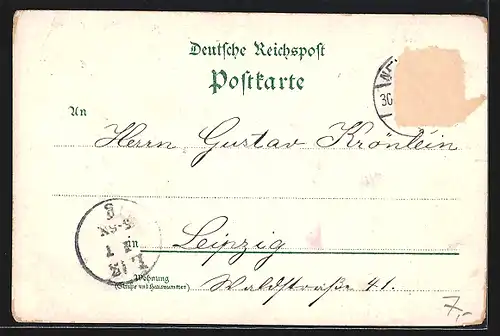 Deutsche Reichspost
Postkarte
An
Herrn Gustav Krönlein
in Leipzig
Wohnung
(Straße und Hausnummer)
Waldstraße 41.
30
7,-